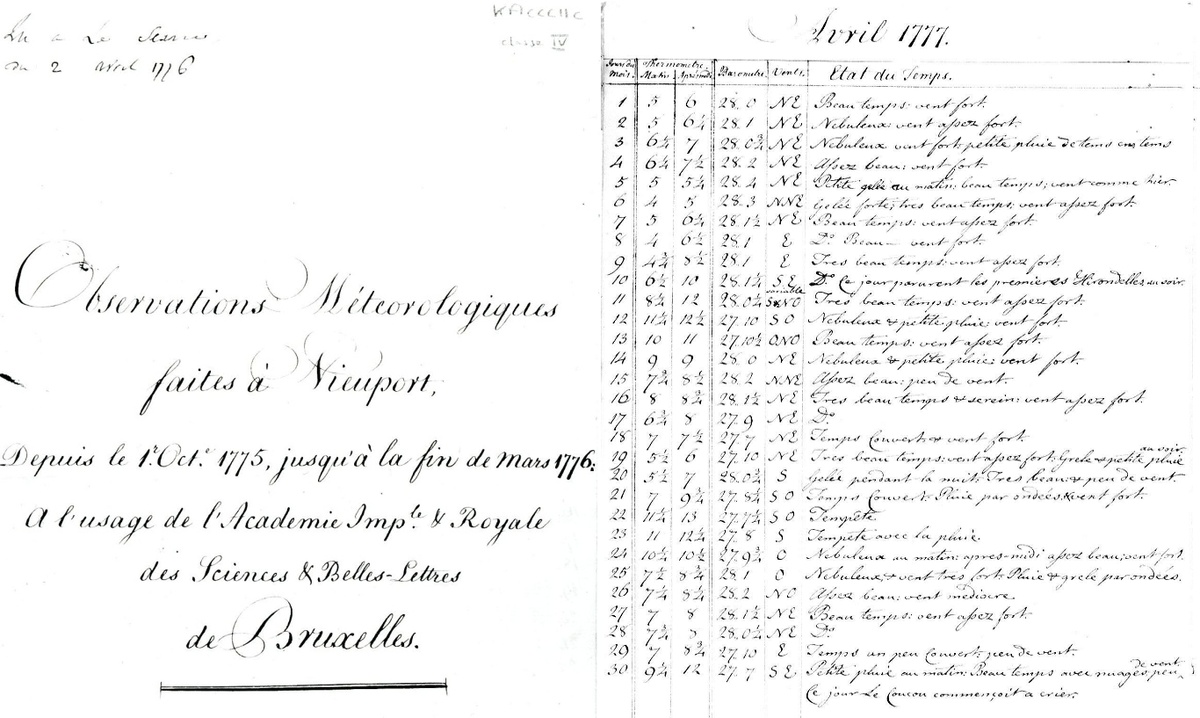 Lu a La Seance
du 2 avril 1776
KACCCIIC
classe IV
Observations Météorologiques
faites à Nieuport,
Depuis le 1r. Oct.e 1775, jusqu'à la fin de Mars 1776:
A l'usage de l'Academie Imp.le & Royale
des Sciences & Belles-Lettres
de Bruxelles.
Avril 1777.
Jours du Mois. Thermometre. Matin Barometre Vents. Etat du Temps.
1 5 6 28.0 NE Beau temps: vent fort.
2 5 6¼ 28.1 NE Nebuleux: vent assez fort.
3 6¼ 7 28.0¾ NE Nebuleux vent fort, petite pluie de tems en tems
4 6¼ 7½ 28.2 NE Assez beau: vent fort.
5 5 5¼ 28.4 NE Petite gelée au matin: beau temps; vent comme hier.
6 4 5 28.3 NNE Gelée forte; très beau temps; vent assez fort.
7 5 6¼ 28.1½ NE Beau temps: vent assez fort.
8 4 6½ 28.1 E Do. Beau— vent fort.
9 4¾ 8½ 28.1 E Tres beau temps: vent assez fort.
10 6½ 10 28.1¼ SE Do. Ce jour parurent les premieres Hirondelles, au soir.
variable
11 8¼ 12 28.0¼ NO Tres beau temps: vent assez fort.
12 11¼ 12½ 27.10 SO Nebuleux & petite pluie: vent fort.
13 10 11 27.10½ ONO Beau temps: vent assez fort.
14 9 9 28.0 NE Nebuleux & petite pluie: vent fort.
15 7¾ 8½ 28.2 NNE Assez beau: peu de vent.
16 8 8¾ 28.1½ NE Tres beau temps & serein: vent assez fort.
17 6¾ 8 27.9 NE Do.
18 7 7½ 27.7 NE Temps Couvert & vent fort.
19 5½ 6 27.10 NE Tres beau temps: vent assez fort: Grele & petite pluie au soir.
20 5½ 7 28.0½ S Gelée pendant la nuit: Tres beau & peu de vent.
21 7 9¾ 27.8¼ SO Temps Couvert. Pluie par ondées & vent fort.
22 11½ 13 27.7¼ SO Tempête
23 11 12¼ 27.8 S Tempête avec la pluie.
24 10½ 10½ 27.9¾ O Nebuleux au matin: apres-midi assez beau; vent fort.
25 7½ 8¾ 28.1 O Nebuleux, & vent très fort. Pluie & grele par ondées.
26 7¼ 8¼ 28.2 NO Assez beau: vent mediocre.
27 7 8 28.1½ NE Beau temps: vent assez fort.
28 7¼ 28.0½ NE Do.
29 7 8¾ 27.10 E Temps un peu Couvert: peu de vent.
30 9¼ 12 27.7 SE Petite pluie au matin: Beau temps avec nuages, peu de vent.
Ce jour Le Coucou commençoit a crier.